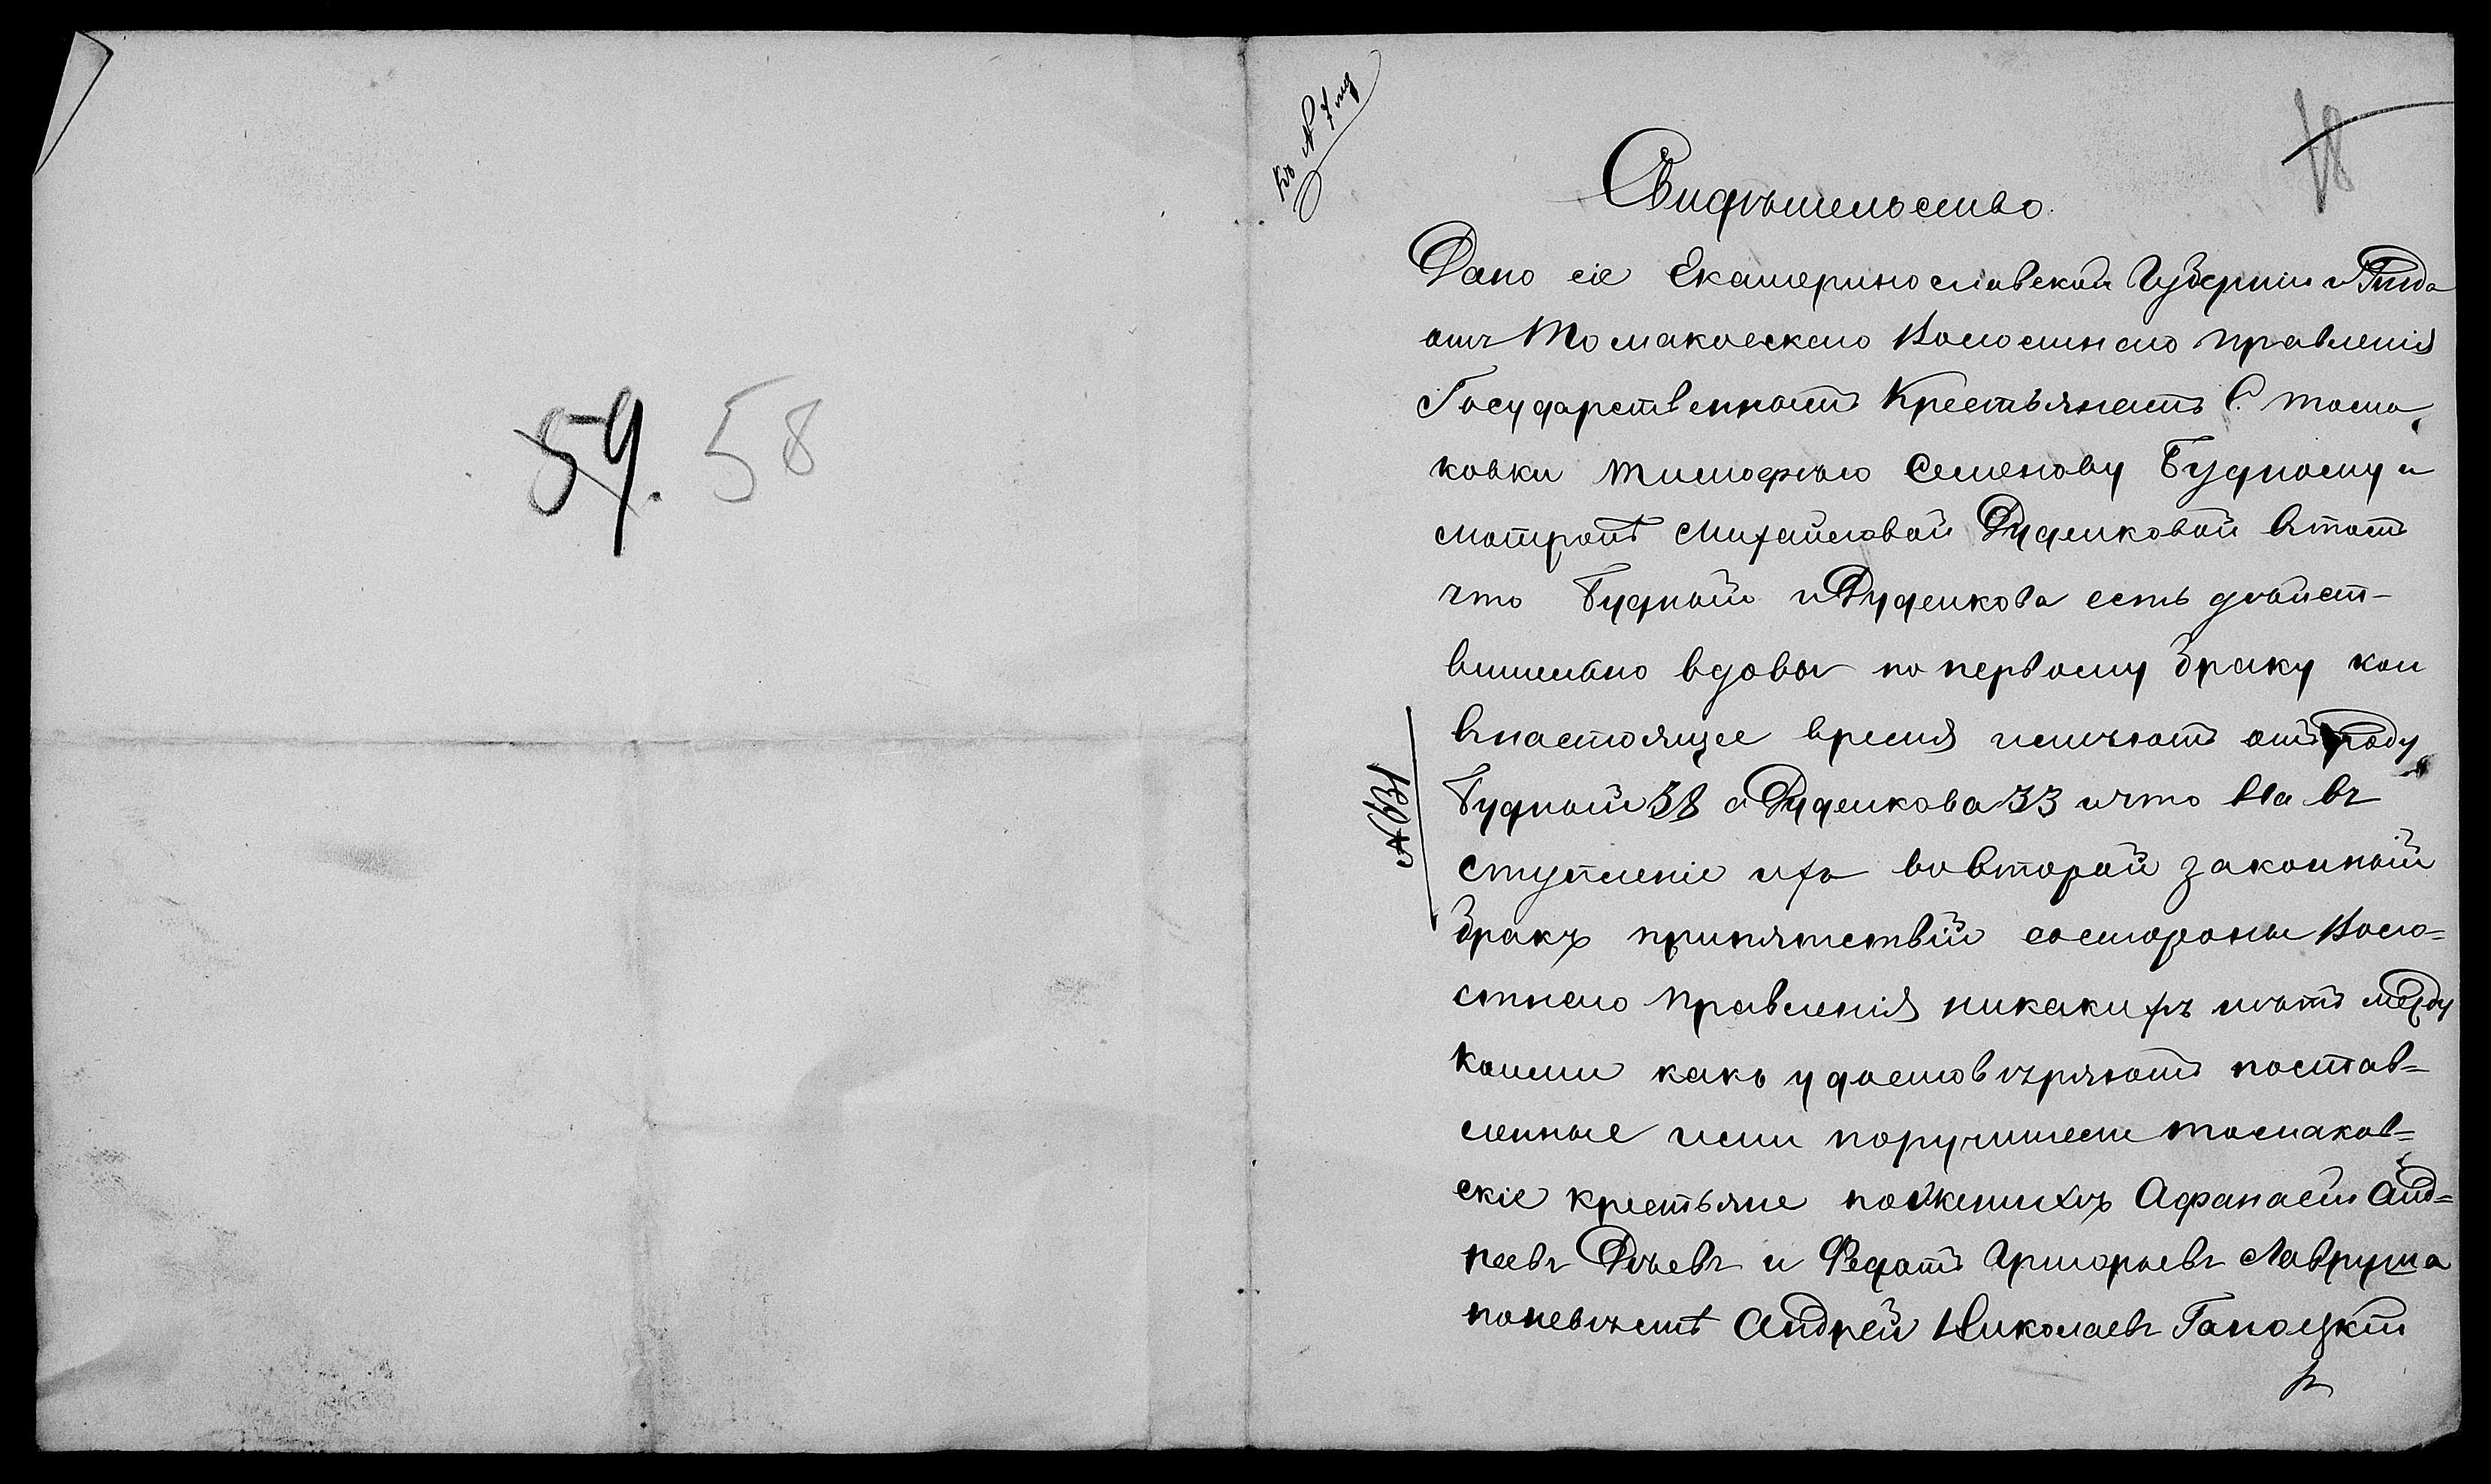 59. 58
къ № 7 му
78
Свидѣтельство.
Дано сіе Екатеринославской Губерніи и Уѣзда
отъ Томаковскаго Волостнаго правленія
Государственнымъ Крестьянамъ С. тома
ковки тимофѣю Семенову Будному и
матронѣ Михайловой Дуденковой втомъ
что Будный и Дуденкова есть дѣйст-
вительно вдовы по первому браку кои
внастоящее время имѣютъ отъ роду
Будный 38 а Дуденкова 33 ичто на въ
№ 31
ступленіе ихъ вовторой законный
бракъ припятствій состороны Воло=
стнаго правленія никакихъ нѣтъ между
коими какъ удостовѣряютъ постав=
ленные ими поручители томаков=
скіе крестьяне поженихѣ Афанасій Анд=
реевъ Дѣевъ и Федотъ Григорьевъ Лавруша
поневѣстѣ Андрей Николаевъ Гапоцкій